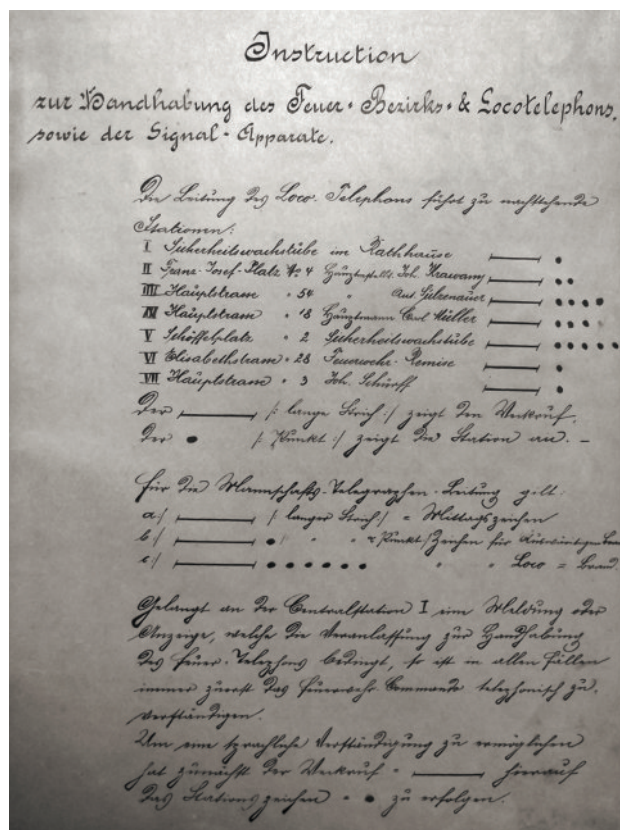 Instruction
zur Handhabung des Feuer- Bezirks- & Locotelephons,
sowie der Signal-Apparate.
Die Leitung des Loco-Telephons führt zu nachstehende
Stationen:
I Sicherheitswachstube im Rathhause
II Franz-Josef-Platz No 4 Joh. Krawany
III Hauptstrasse " 54 " Ant. Sulzenauer
IV Hauptstrasse " 18 Hauptmann Carl Müller
V Schöffelplatz " 2 Sicherheitswachstube
VI Elisabethstrasse " 28 Feuerwehr-Remise
VII Hauptstrasse " 3 Joh. Schürff
Der /: lange Strich :/ zeigt den Weckruf.
der /: Punkt :/ zeigt die Station an. –
Für die Mannschafts-Telegraphen-Leitung gilt:
a:/ /: langer Strich :/ = Mittagszeichen
b:/ /: " " Punkt/ Zeichen für
c:/ " " Loco = Brand
Gelangt an der Centralstation I eine Meldung oder
Anzeige, welche die Veranlassung zur Handhabung
des Feuer-Telephons bedingt, so ist in allen Fällen
immer zuerst das Feuerwehr-Commando telephonisch zu
verständigen.
Um eine sprachliche Verständigung zu ermöglichen
hat zunächst der Weckruf - hierauf
das Stationszeichen - zu erfolgen.